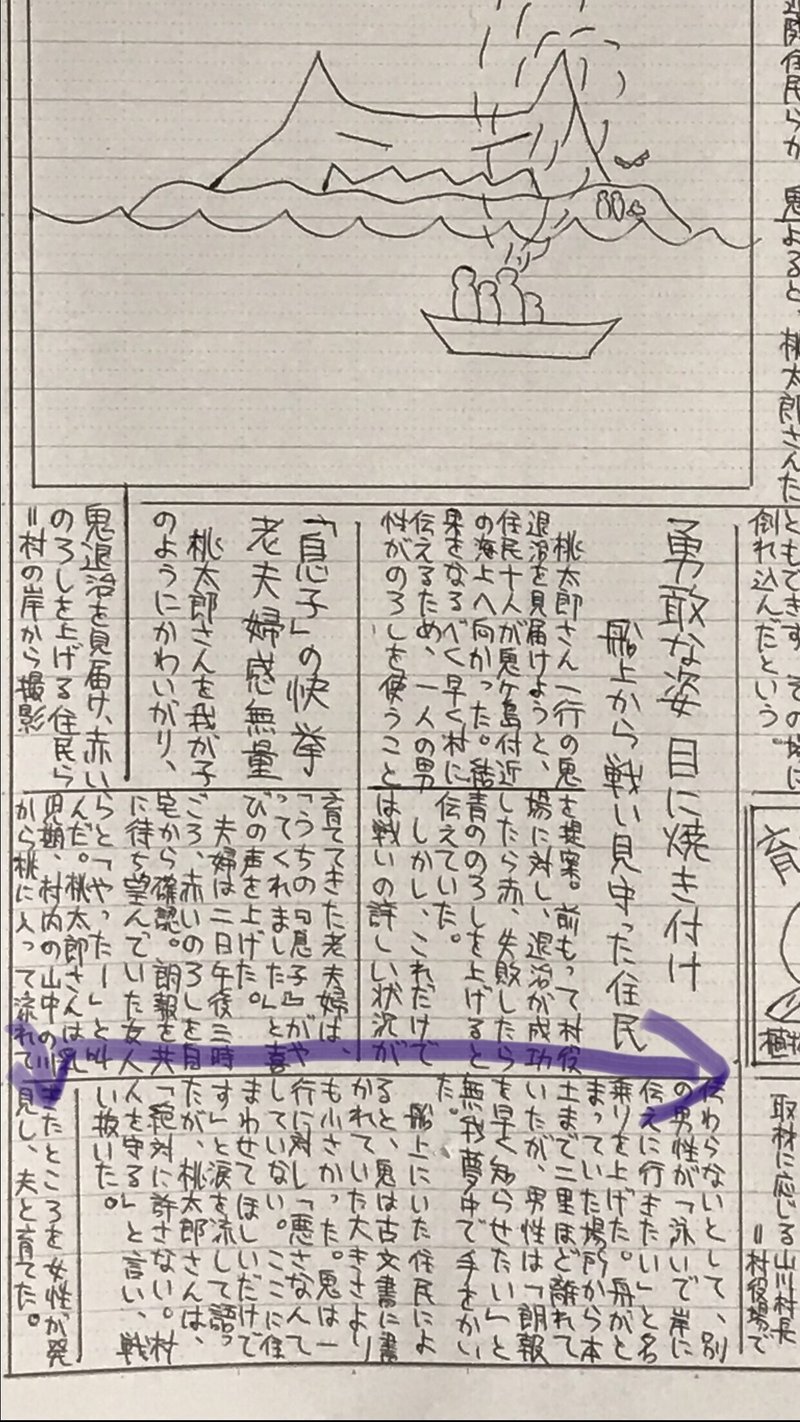 近隣住民らが
よると、桃太郎さんた
ともできず、その場に
倒れ込んだという。
育
取材に応じる山川村長
=村役場で
勇敢な姿 目に焼き付け
船上から戦い見守った住民
桃太郎さん一行の鬼
退治を見届けようと、
住民十人が鬼ヶ島付近
の海上へ向かった。結
果をなるべく早く村に
伝えるため、一人の男
性がのろしを使うこと
を提案。前もって村役
場に対し、退治が成功
したら赤、失敗したら
青ののろしを上げると
伝えていた。
しかし、これだけで
は戦いの詳しい状況が
伝わらないとして、別
の男性が「泳いで岸に
伝えに行きたい」と名
乗りを上げた。舟がと
まっていた場所から本
土まで二里ほど離れて
いたが、男性は「朗報
を早く知らせたい」と
無我夢中で手をかい
た。
船上にいた住民によ
ると、鬼は古文書に書
かれていた大きさより
も小さかった。鬼は一
行に対し「悪さなんて
していない。ここに住
まわせてほしいだけで
す」と涙を流して語っ
たが、桃太郎さんは、
「絶対に許さない。村
人を守る」と言い、戦
い抜いた。
「息子」の快挙
老夫婦感無量
桃太郎さんを我が子
のようにかわいがり、
育ててきた老夫婦は、
「うちの『息子』がや
ってくれました」と喜
びの声を上げた。
夫婦は二日午後三時
ごろ、赤いのろしを自
宅から確認。朗報を共
に待ち望んでいた友人
らと「やったー」と叫
んだ。桃太郎さんは乳
児期、村内の山中の川
から桃に入って流れて
きたところを女性が発
見し、夫と育てた。
鬼退治を見届け、赤い
のろしを上げる住民ら
=村の岸から撮影